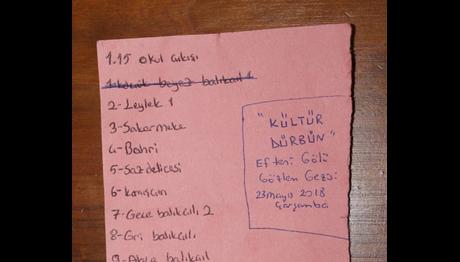 1.15 okul çıkışı
1-küçük beyaz balıkçıl 1
2-Leylek 1
3-Sakarmeke
4-Bahri
5-Sazdelicesi
6-karışçın
7-Gece balıkçılı 2
8-Gri balıkçılı
9-Alaca balıkçıl
"KÜLTÜR
DÜRBÜN"
Efteni Gölü
Gözlem Gezisi
23 mayıs 2018
Çarşamba